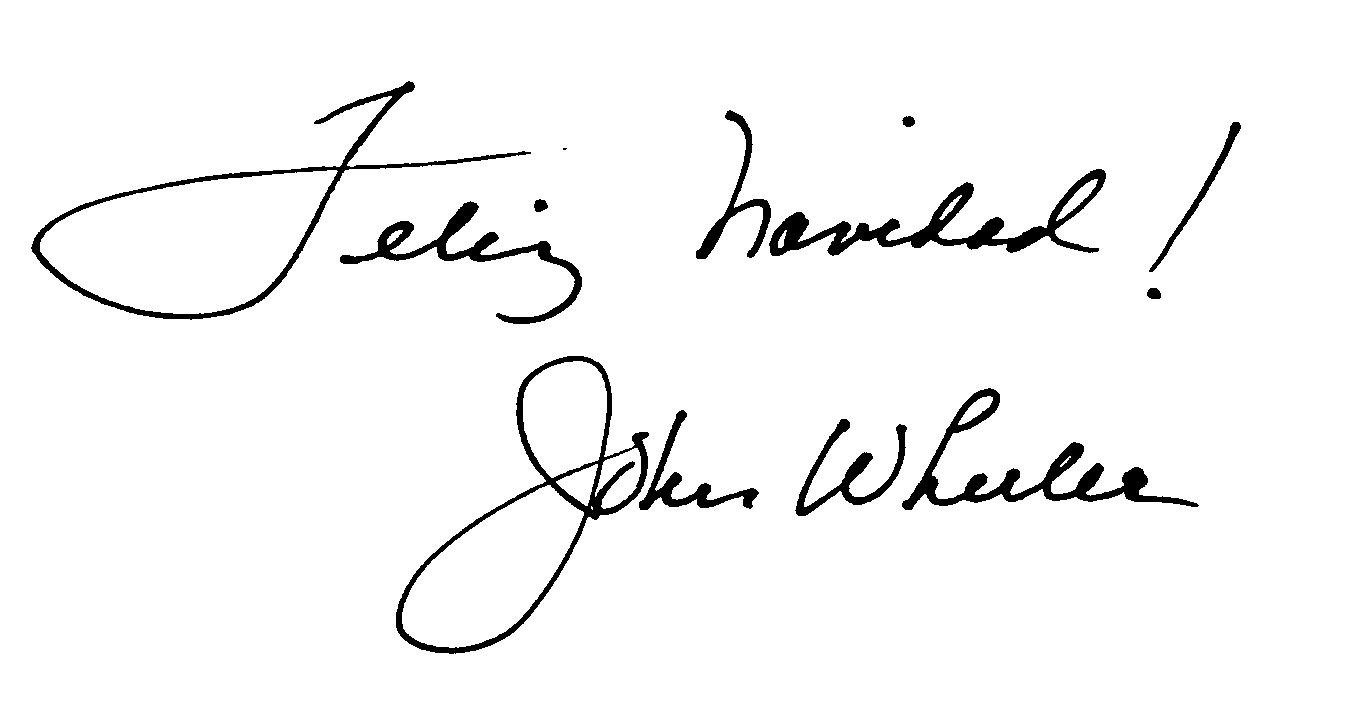 Feliz Navidad!
John Wheeler